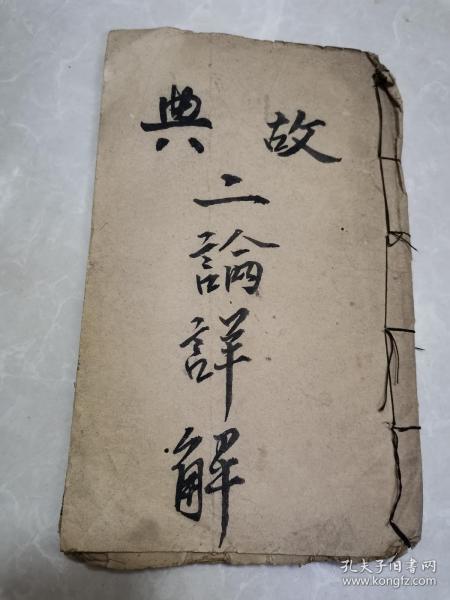 故典
二論詳解
孔夫子旧书网
www.kongfz.com